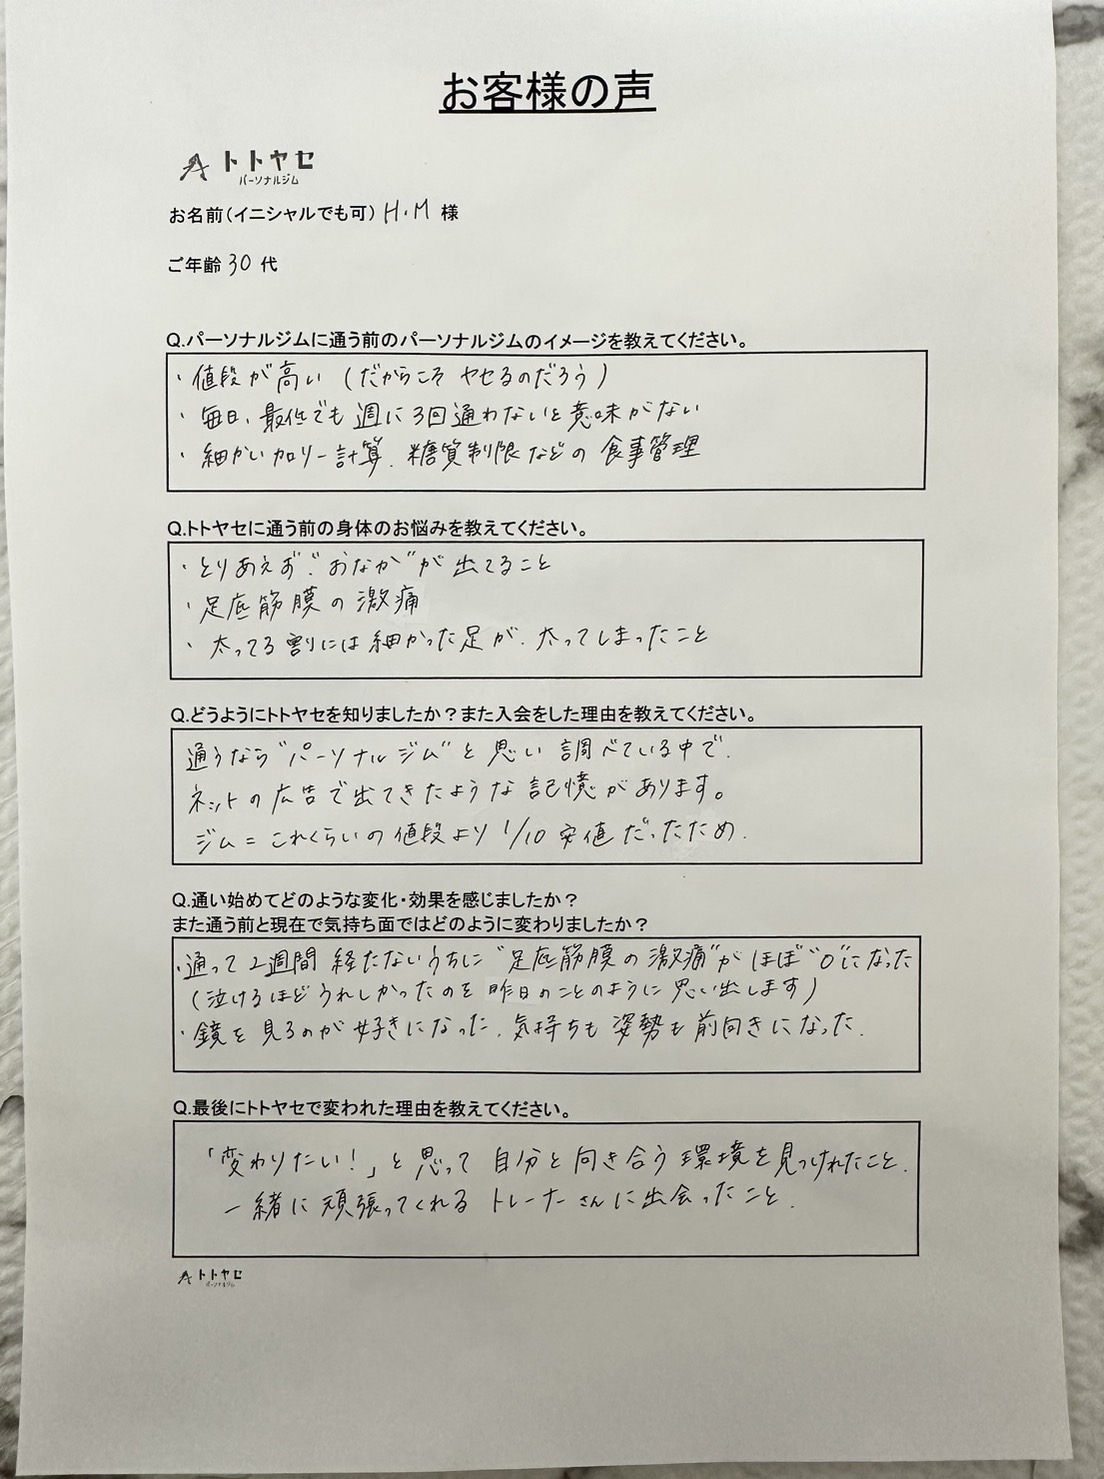 お客様の声
トトヤセ
パーソナルジム
お名前(イニシャルでも可) H.M 様
ご年齢 30 代
Q.パーソナルジムに通う前のパーソナルジムのイメージを教えてください。
・値段が高い (だからこそ ヤセるのだろう)
・毎日、最低でも週に3回通わないと意味がない
・細かいカロリー計算、糖質制限などの食事管理
Q.トトヤセに通う前の身体のお悩みを教えてください。
・とりあえず“おなか”が出てること
・足底筋膜の激痛
・太ってる割には細かった足が、太ってしまったこと
Q.どうようにトトヤセを知りましたか？また入会をした理由を教えてください。
通うなら“パーソナルジム”と思い調べている中で、
ネットの広告で出てきたような記憶があります。
ジム=これくらいの値段より1/10安値だったため、
Q.通い始めてどのような変化・効果を感じましたか？
また通う前と現在で気持ち面ではどのように変わりましたか？
・通って2週間経たないうちに“足底筋膜の激痛”がほぼ“0”になった
(泣けるほどうれしかったのを昨日のことのように思い出します)
・鏡を見るのが好きになった、気持ちも姿勢も前向きになった、
Q.最後にトトヤセで変われた理由を教えてください。
「変わりたい！」と思って自分と向き合う環境を見つけれたこと、
一緒に頑張ってくれるトレーナーさんに出会ったこと、
トトヤセ
パーソナルジム